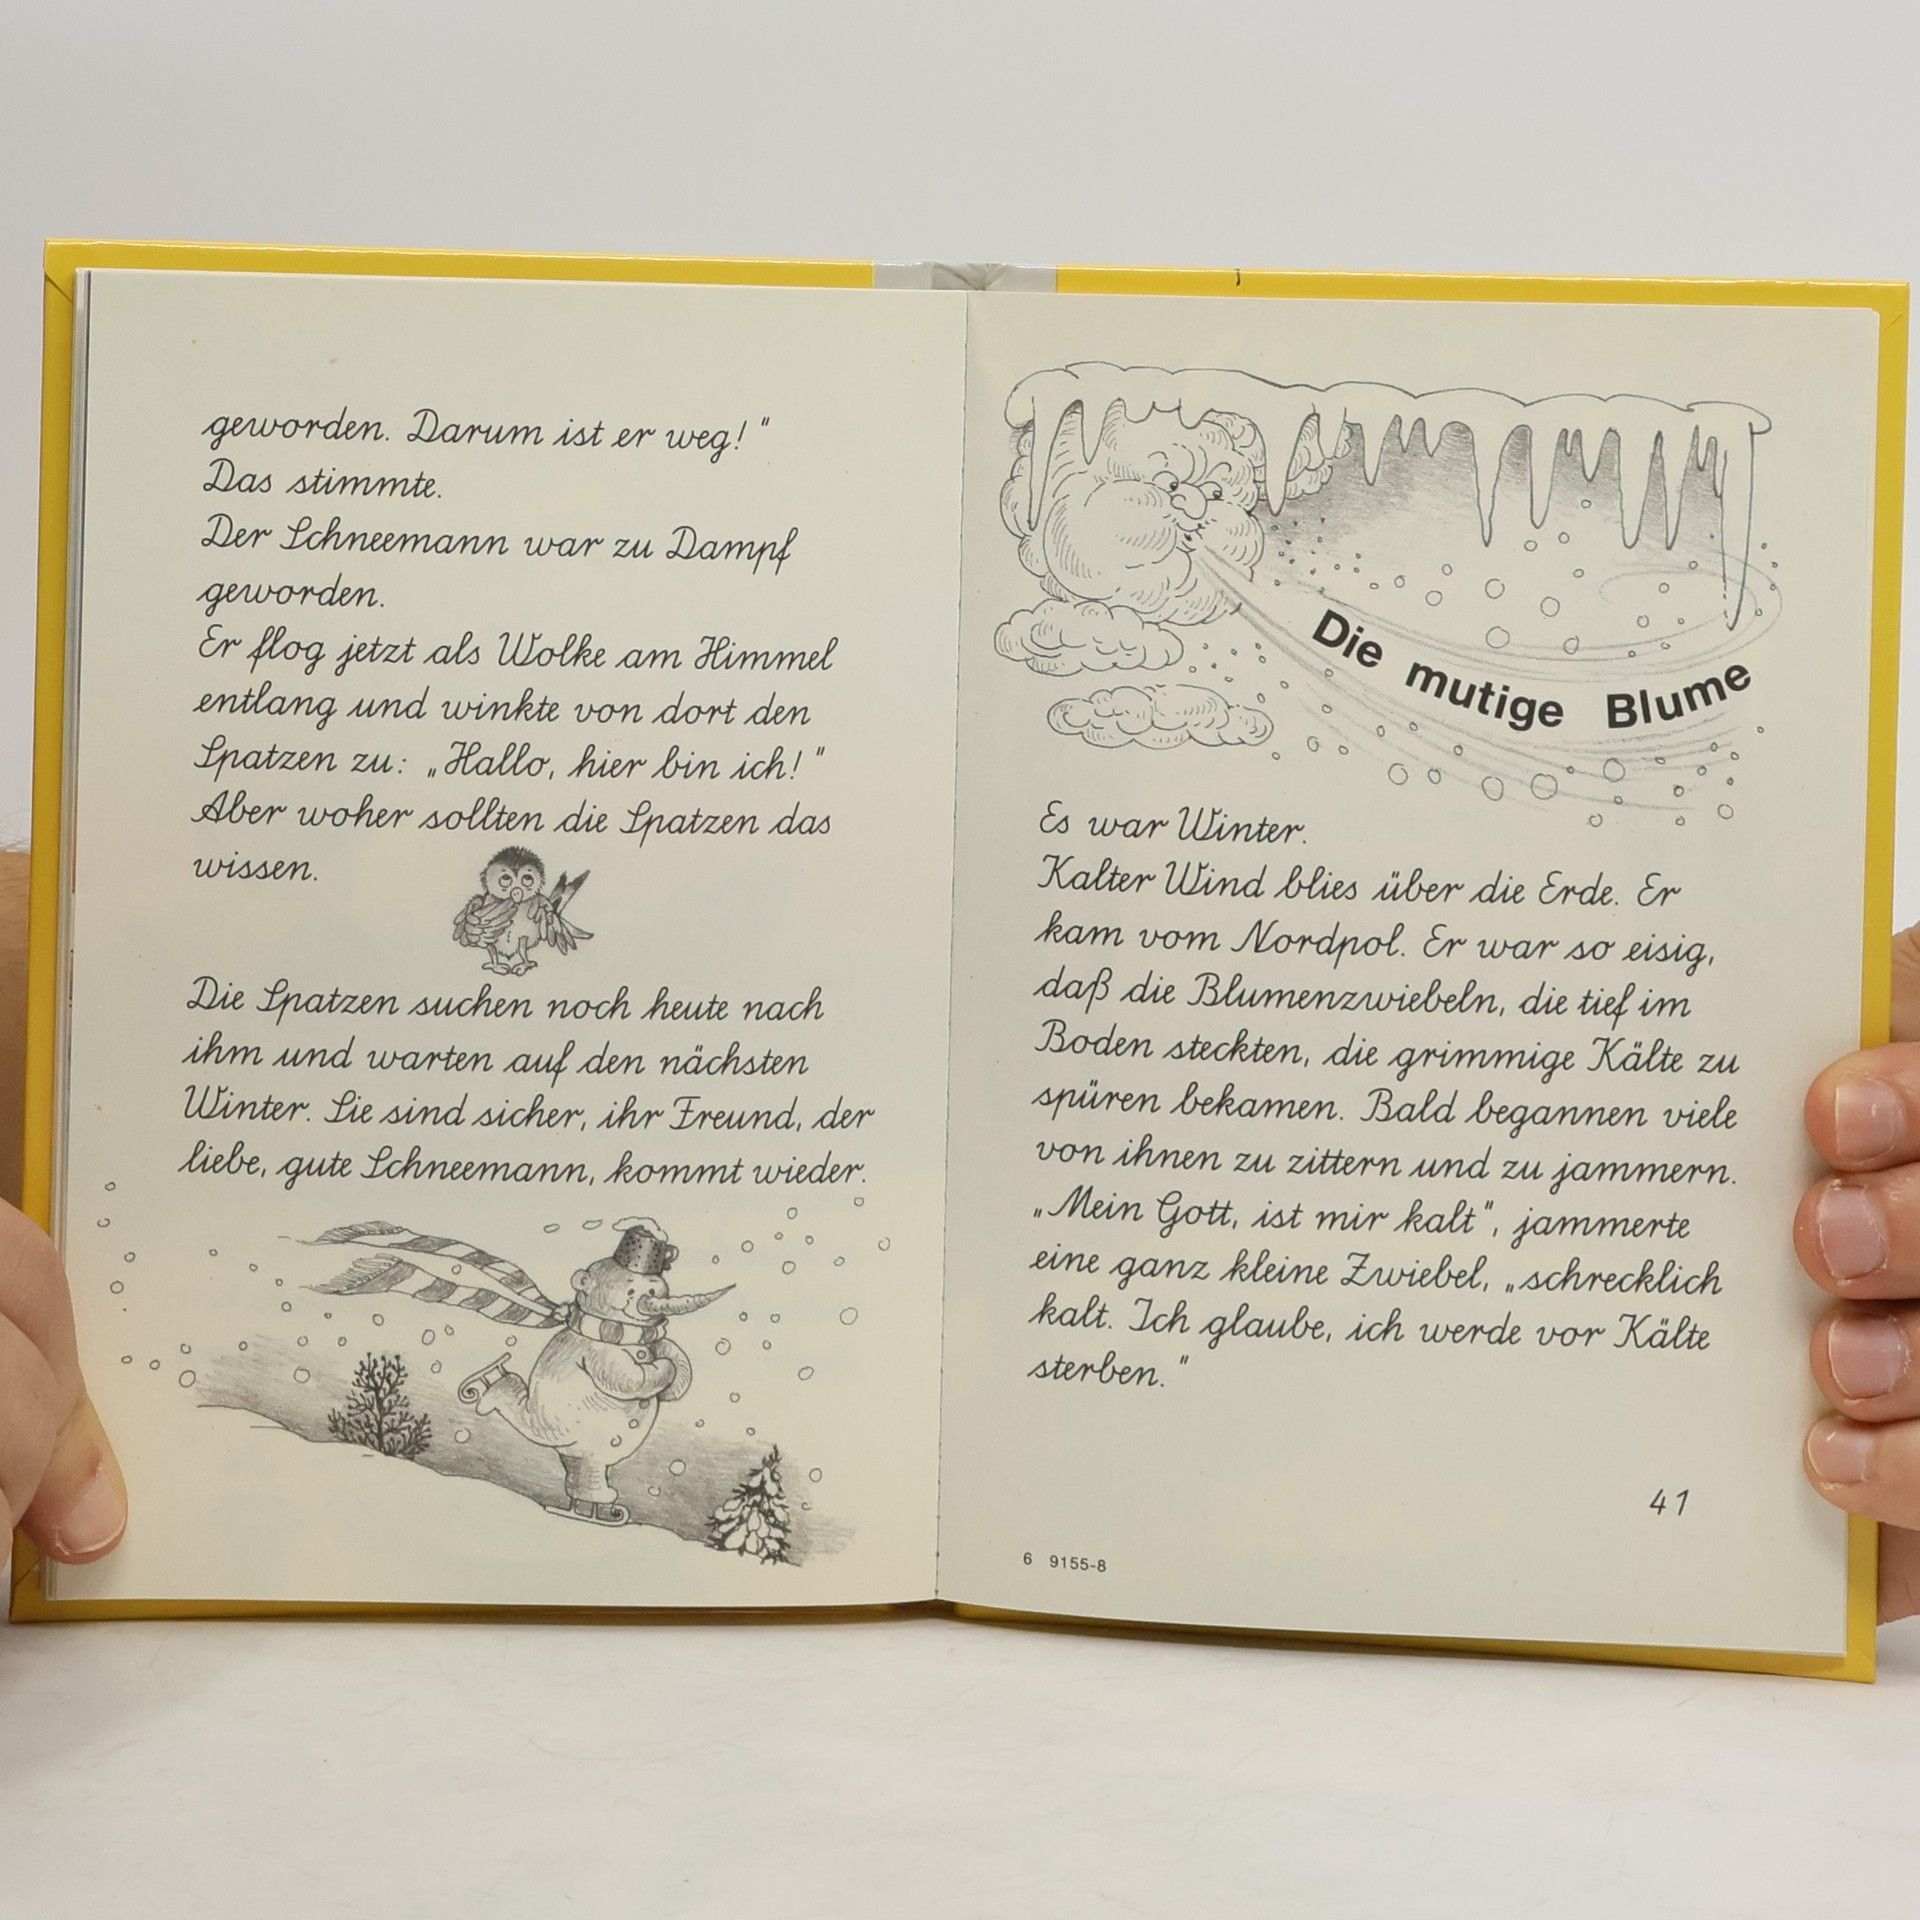 geworden. Darum ist er weg!"
Das stimmte.
Der Schneemann war zu Dampf
geworden.
Er flog jetzt als Wolke am Himmel
entlang und winkte von dort den
Spatzen zu: „Hallo, hier bin ich!"
Aber woher sollten die Spatzen das
wissen.
Die Spatzen suchen noch heute nach
ihm und warten auf den nächsten
Winter. Sie sind sicher, ihr Freund, der
liebe, gute Schneemann, kommt wieder.
Die mutige Blume
Es war Winter.
Kalter Wind blies über die Erde. Er
kam vom Nordpol. Er war so eisig,
daß die Blumenzwiebeln, die tief im
Boden steckten, die grimmige Kälte zu
spüren bekamen. Bald begannen viele
von ihnen zu zittern und zu jammern.
„Mein Gott, ist mir kalt", jammerte
eine ganz kleine Zwiebel, „schrecklich
kalt. Ich glaube, ich werde vor Kälte
sterben."
41
6 9155-8